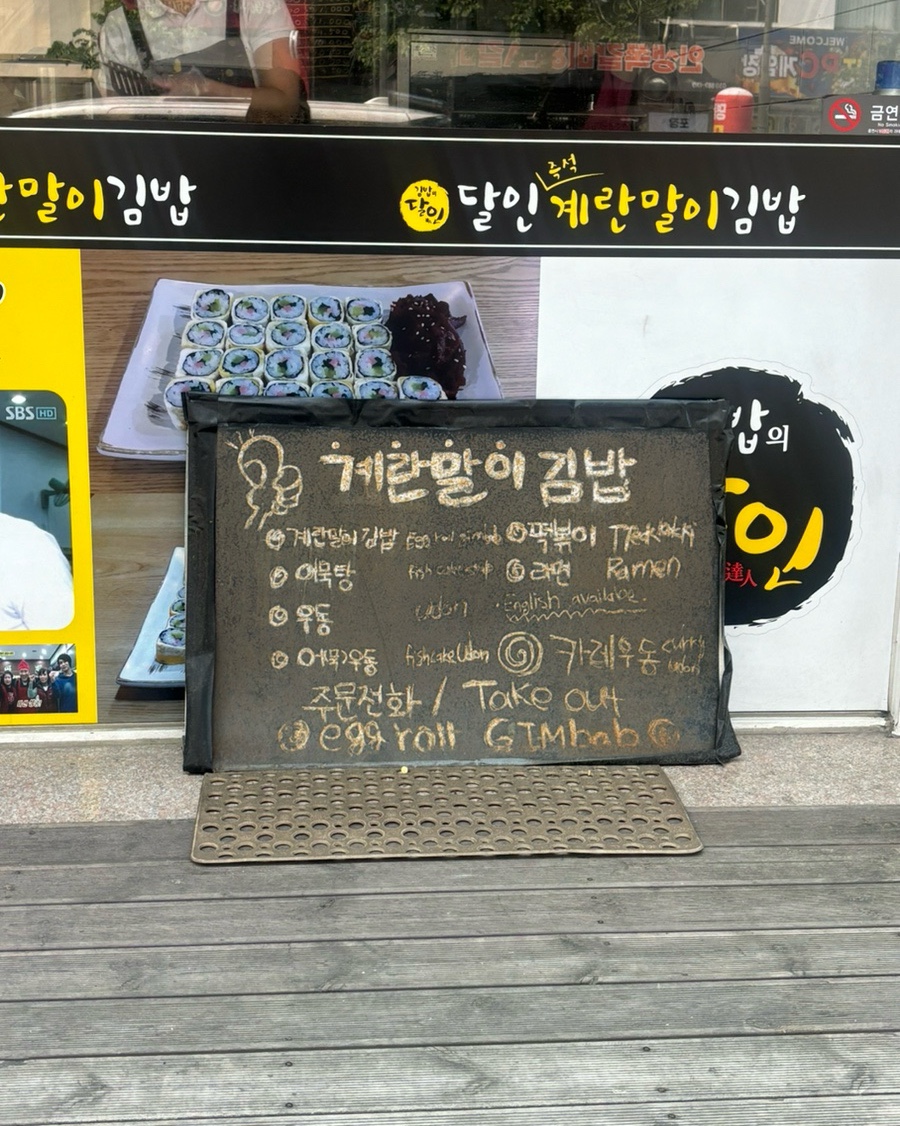 WELCOME
PC게임장
인생쪽갈비
금연
No Smoking
란말이김밥
김밥의 달인
달인 즉석 계란말이김밥
SBS HD
밥의
인
達人
계란말이 김밥
계란말이 김밥 Egg roll gimbab
떡볶이 Tteokbokki
어묵탕 fish cake soup
라면 Ramen
우동 Udon
English available.
어(묵)우동 fishcake Udon
카레우동 curry udon
주문전화 / Take out
egg roll GIMbab